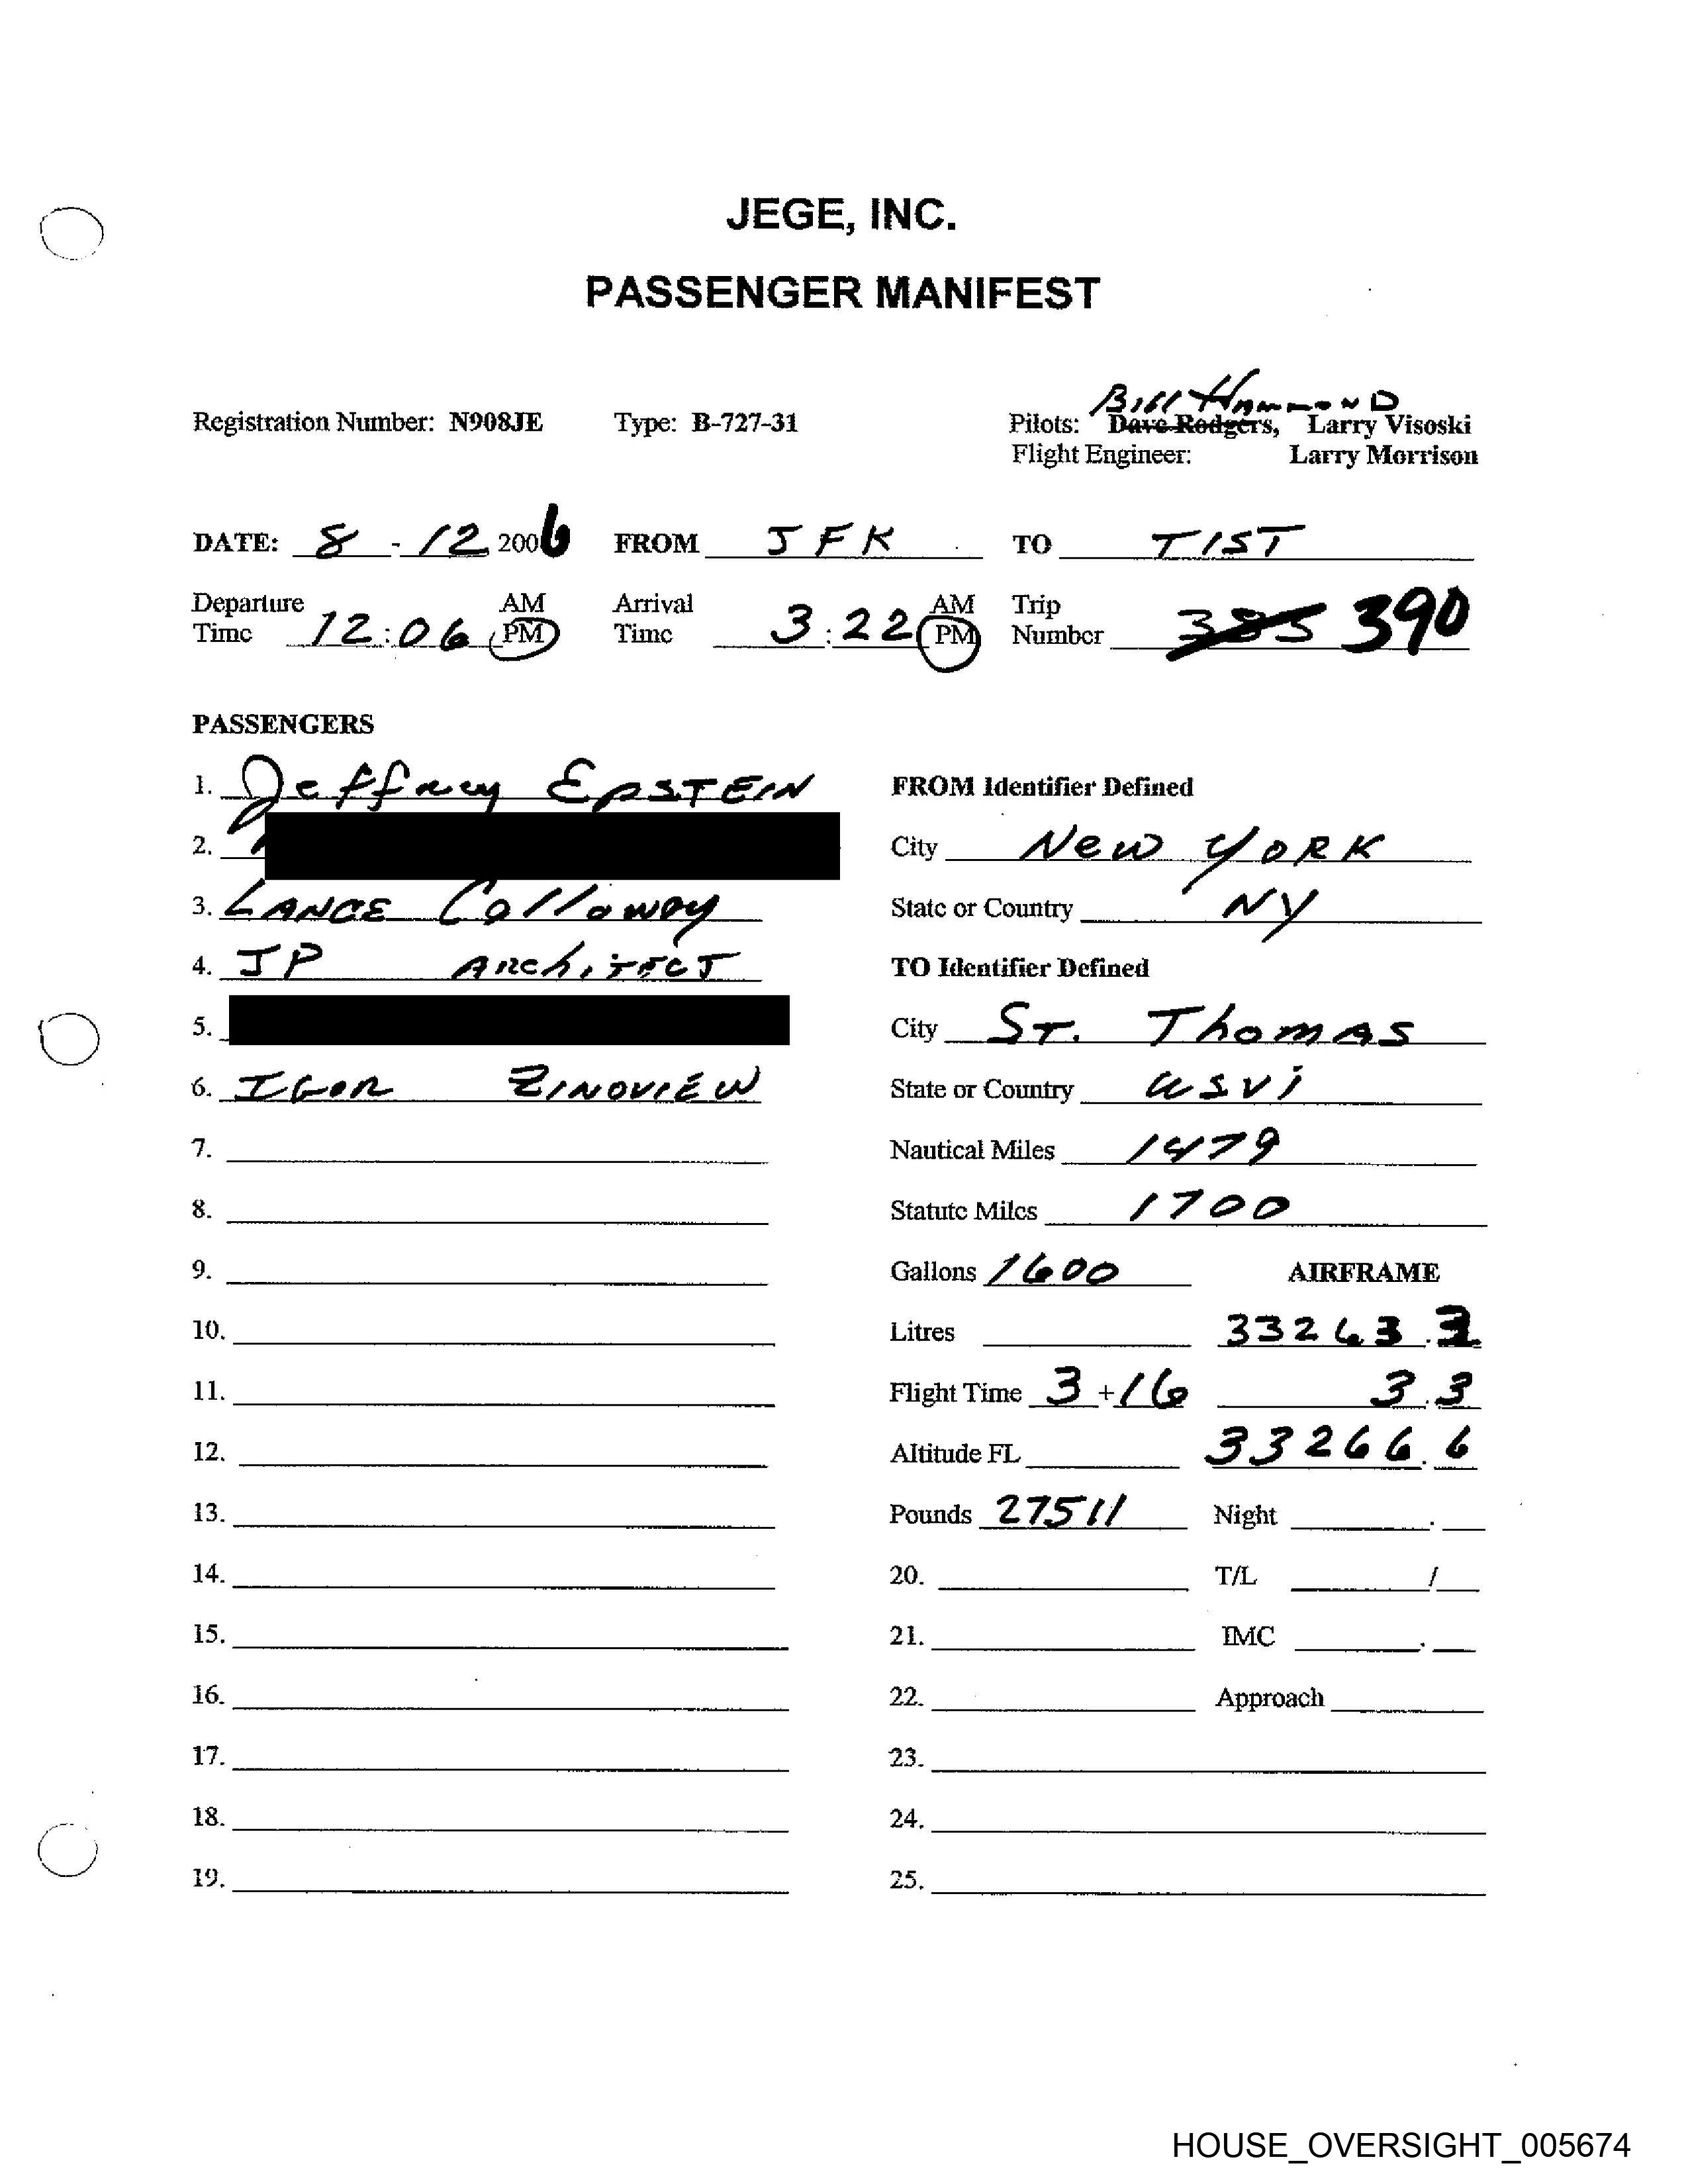 JEGE, INC.
PASSENGER MANIFEST
Bill Hammond
Registration Number: N908JE Type: B-727-31 Pilots: Dave Rodgers, Larry Visoski
Flight Engineer: Larry Morrison
DATE: 8 - 12 2006 FROM JFK TO TIST
Departure Time 12:06 AM PM Arrival Time 3:22 AM PM Trip Number 385 390
PASSENGERS
1. Jeffrey EPSTEIN FROM Identifier Defined
2. City New YORK
3. LANCE Calloway State or Country NY
4. JP ArchiTECT TO Identifier Defined
5. City ST. ThomAS
6. IGOR ZINOVIEW State or Country USVi
7. Nautical Miles 1479
8. Statute Miles 1700
9. Gallons 1600 AIRFRAME
10. Litres 33263.3
11. Flight Time 3+16 3.3
12. Altitude FL 33266.6
13. Pounds 27511 Night .
14. 20. T/L /
15. 21. IMC .
16. 22. Approach
17. 23.
18. 24.
19. 25.
HOUSE_OVERSIGHT_005674